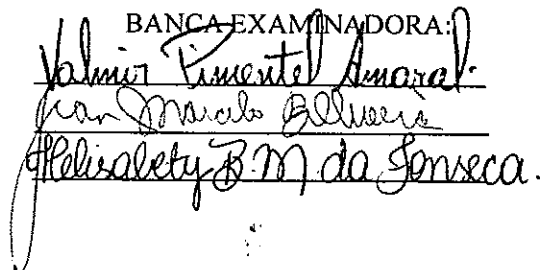 BANCA EXAMINADORA:
Valmir Pimentel Amaral.
Jean Marcelo
Helisabety B. M da Fonseca.